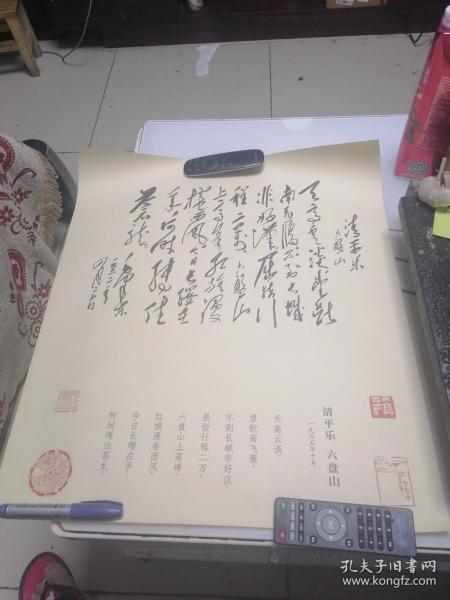 清平乐
六盘山
天高云淡望断
南飞雁不到长城
非好汉屈指行
程二万六盘山
上高峰红旗漫
卷西风今日长缨在
手何时缚住
苍龙
毛泽东
清平乐 六盘山
一九三五年十月
天高云淡，
望断南飞雁。
不到长城非好汉，
屈指行程二万。
六盘山上高峰，
红旗漫卷西风。
今日长缨在手，
何时缚住苍龙。
孔夫子旧书网
www.kongfz.com